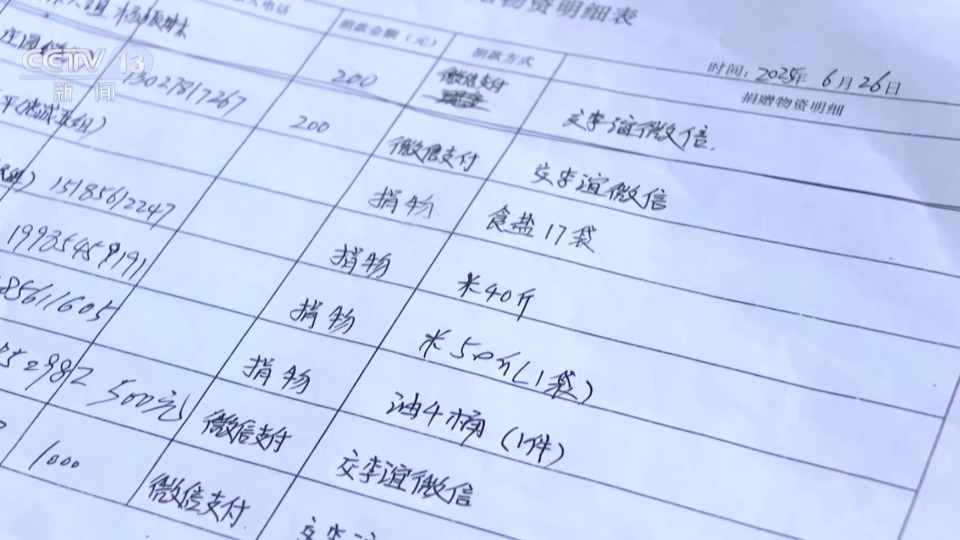 CCTV 13
新闻
物资明细表
时间：2025年6月26日
电话
捐款金额（元）
捐款方式
捐赠物资明细
200
微信支付
交李谊微信.
13027817267
200
微信支付
交李谊微信
捐物
食盐17袋
15185612247
捐物
米40斤
19985459191
捐物
米50斤(1袋)
85611605
捐物
油4桶(1件)
52982
500元
微信支付
交李谊微信
1000
微信支付